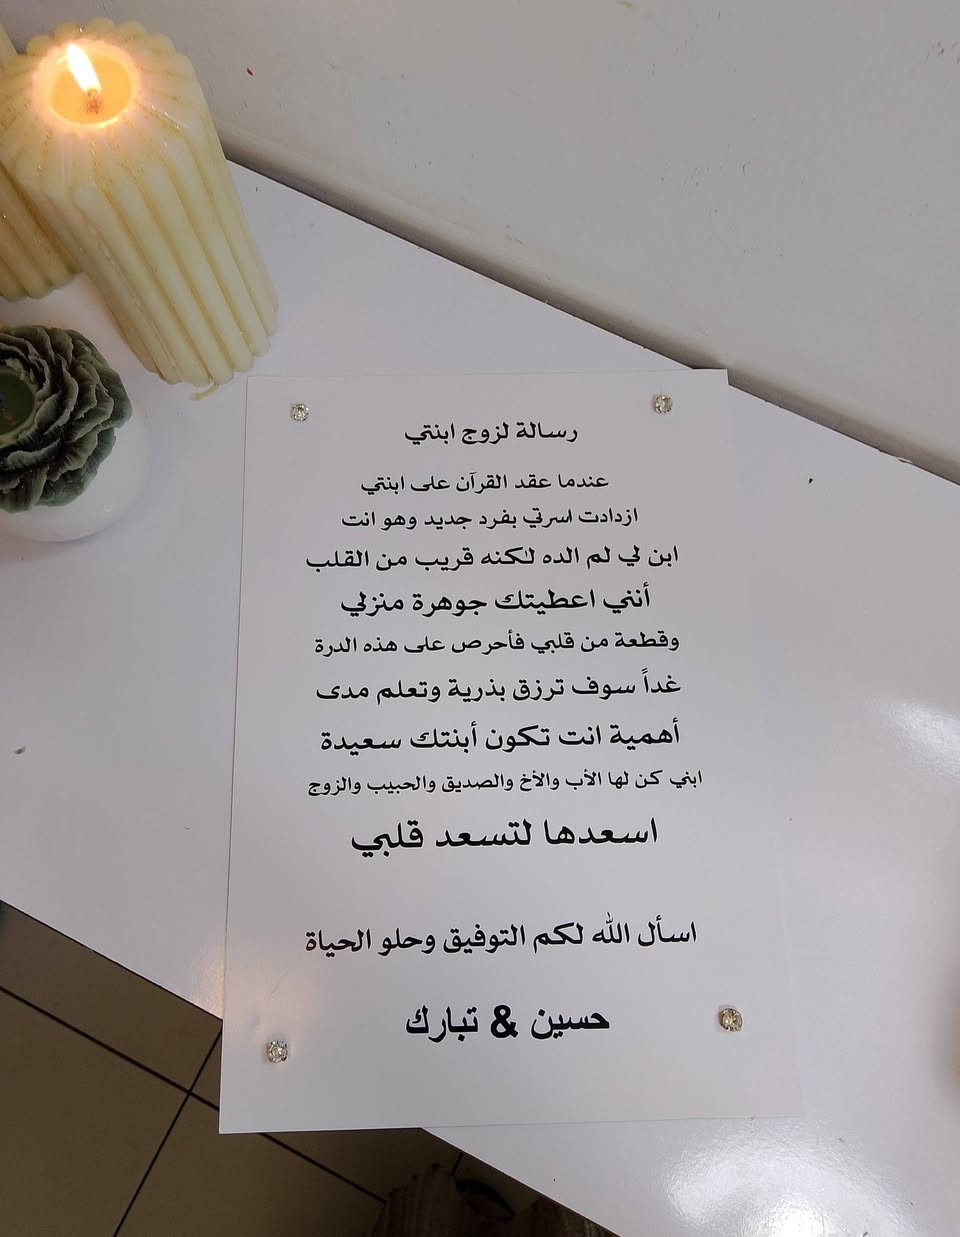 رسالة لزوج ابنتي
عندما عقد القرآن على ابنتي
ازدادت اسرتي بفرد جديد وهو انت
ابن لي لم الده لكنه قريب من القلب
أنني اعطيتك جوهرة منزلي
وقطعة من قلبي فأحرص على هذه الدرة
غداً سوف ترزق بذرية وتعلم مدى
أهمية انت تكون أبنتك سعيدة
ابني كن لها الأب والأخ والصديق والحبيب والزوج
اسعدها لتسعد قلبي
اسأل الله لكم التوفيق وحلو الحياة
حسين & تبارك